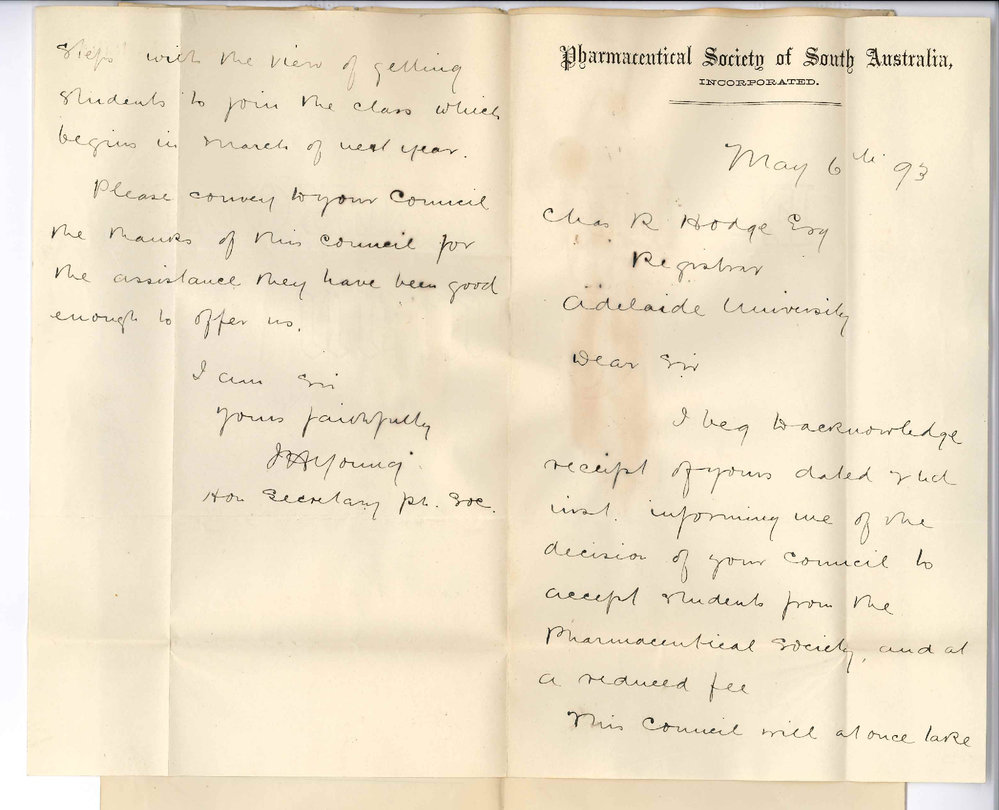 Pharmaceutical Society of South Australia,
INCORPORATED.
May 6th 93
Chas R Hodge Esq
Registrar
Adelaide University
Dear Sir
I beg to acknowledge
receipt of yours dated 2nd
inst. informing me of the
decision of your Council to
accept students from the
Pharmaceutical Society, and at
a reduced fee
This Council will at once take
steps with the view of getting
students to join the class which
begins in March of next year.
Please convey to your Council
the thanks of this Council for
the assistance they have been good
enough to offer us.
I am Sir
Yours faithfully
J H Young
Hon Secretary Ph. Soc.